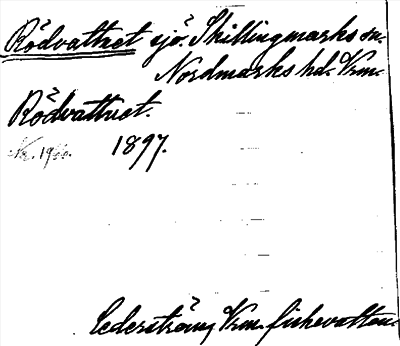 Rödvattnet sjö. Skillingmarks sn.
Nordmarks hd. Vrm.
Rödvattnet.
1897.
Cederström, Vrm. fiskevatten.